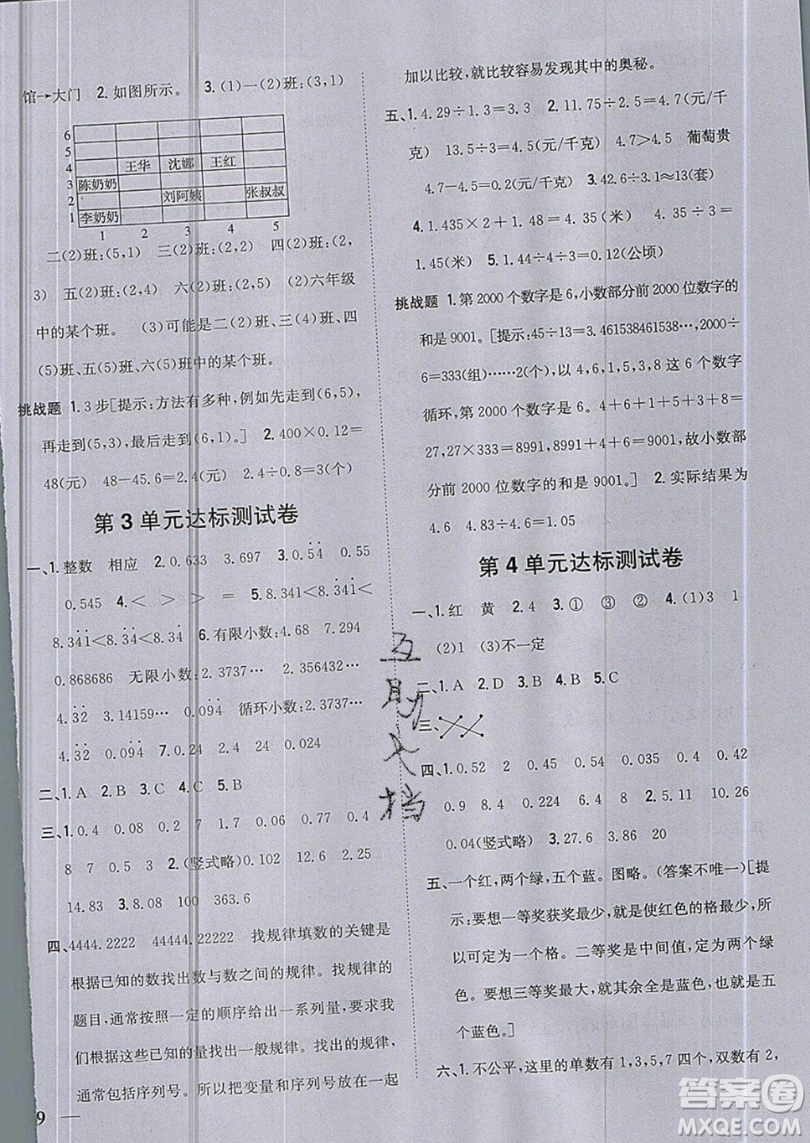 馆→大门 2.如图所示。 3.(1)一(2)班:(3,1)
6
5
4 王华 沈娜 王红
3 陈奶奶
2 刘阿姨 张叔叔
1 李奶奶
1 2 3 4 5
二(2)班:(5,1) 三(2)班:(2,2) 四(2)班:(2,
3) 五(2)班:(2,4) 六(2)班:(2,5) (2)六年级
中的某个班。 (3)可能是二(2)班、三(4)班、四
(5)班、五(5)班、六(5)班中的某个班。
挑战题 1.3步[提示:方法有多种,例如先走到(6,5),
再走到(5,3),最后走到(6,1)。] 2.400×0.12=
48(元) 48-45.6=2.4(元) 2.4÷0.8=3(个)
第3单元达标测试卷
一、1.整数 相应 2.0.633 3.697 3.0.5̇4̇ 0.55
0.545 4.< > > = 5.8.341<8.3̇41̇<
8.34̇1̇<8.3̇4̇ 6.有限小数:4.68 7.294
0.868686 无限小数:2.3737… 2.3737…
4.3̇2̇ 3.14159… 0.09̇4̇ 循环小数:2.3737…
4.3̇2̇ 0.09̇4̇ 7.24 2.4 0.24 0.024
二、1.A 2.B 3.C 4.C 5.B
三、1.0.4 0.08 2 0.4 0.8 0.3 9 0.9
8 7 0.5 4 2.(竖式略)0.102 12.6 2.5
14.83 3.8.08 100 363.6
四、4444.2222 44444.22222 找规律填数的关键是
根据已知的数找出数与数之间的规律。找规律的
题目,通常按照一定的顺序给出一系列量,要求我
们根据这些已知的量找出一般规律。找出的规律,
通常包括序列号。所以把变量和序列号放在一起
9
加以比较,就比较容易发现其中的奥秘。
五、1.4.29÷1.3=3.3 2.11.75÷2.5=4.7(元/千
克) 13.5÷3=4.5(元/千克) 4.7>4.5 葡萄贵
4.7-4.5=0.2(元/千克) 3.42.6÷3.2≈13(套)
4.1.435×2+1.48=4.35(米) 4.35÷3=
1.45(米) 5.2.16÷6÷3=0.12(公顷)
挑战题 1.第2000个数字是6,小数部分前2000位数字的
和是9001。[提示:45÷13=3.461538461538…,2000÷
6=333(组)……2(个),所以按照4,6,1,5,3,8这6个数字
循环,第2000位数字是6。4+6+1+5+3+8=
27,27×333=8991,8991+4+6=9001,故小数部
分前2000位数字的和是9001。] 2.实际结果为
4.6 4.83÷4.6=1.05
第4单元达标测试卷
一、1.红 黄 2.4 3.① ③ ② 4.(1)3 1
(2)1 (3)不一定
二、1.A 2.D 3.B 4.A 5.C
三、
四、1.0.52 2 0.5 4 0.15 0.4 0.2 0.42
0.9 9 0.224 0.6 2.1.34 0.285 0.91
0.04(竖式略) 3.27.6 3.86 20
五、一个红,两个绿,五个蓝。图略。(答案不唯一)[提
示:要想一等奖获奖最少,就是使红色的格最少,所
以可定为一个格。二等奖是中间值,定为两个绿
色。要想三等奖最大,就是其余全是蓝色,为五
个蓝色。]
六、1.不公平,这里的单数有1,3,5,7四个,双数有2,
互助文档
答案圈
MXQE.COM